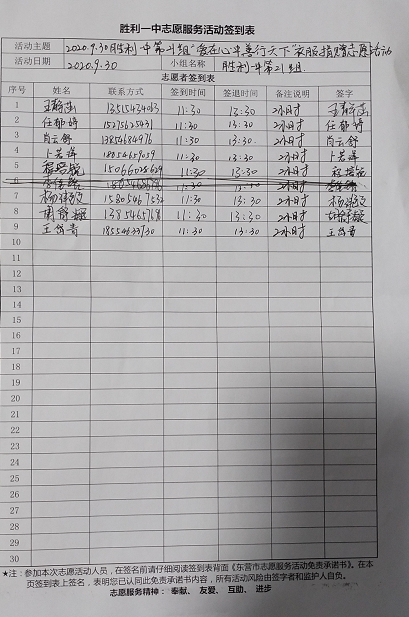 胜利一中志愿服务活动签到表
活动主题 2020.9.30胜利一中第21组"爱在心中善行天下"衣服捐赠志愿活动
活动日期 2020.9.30 小组名称 胜利一中第21组
志愿者签到表
序号 姓名 联系方式 签到时间 签退时间 备注说明 签字
1 11:30 13:30 2小时
2 任郁婷 15275625431 11:30 13:30 2小时 任郁婷
3 肖云舒 13854684976 11:30 13:30 2小时 肖云舒
4 卜若洋 18854657059 11:30 13:30 2小时 卜若洋
5 程培锐 15066028629 11:30 13:30 2小时 程培锐
6 11:30 2小时
7 11:30 13:30 2小时
8 11:30 13:30 2小时
9 王岱青 18554633730 11:30 13:30 2小时 王岱青
10
11
12
13
14
15
16
17
18
19
20
21
22
23
24
25
26
27
28
29
30
★注：参加本次志愿活动人员，在签名前请仔细阅读签到表背面《东营市志愿服务活动免责承诺书》。在本
页签到表上签名，表明您已认同此免责承诺书内容，所有活动风险由签字者和监护人自负。
志愿服务精神： 奉献、 友爱、 互助、 进步